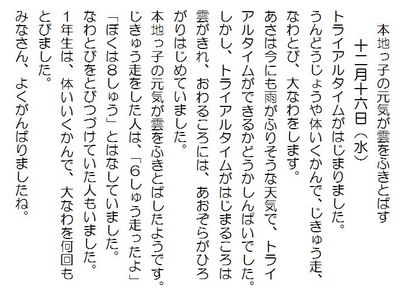 本地っ子の元気が雲をふきとばす
十二月十六日（水）
トライアルタイムがはじまりました。
うんどうじょうや体いくかんで、じきゅう走、
なわとび、大なわをします。
あさは今にも雨がふりそうな天気で、トライ
アルタイムができるかどうかしんぱいでした。
しかし、トライアルタイムがはじまるころは
雲がきれ、おわるころには、あおぞらがひろ
がりはじめていました。
本地っ子の元気が雲をふきとばしたようです。
じきゅう走をした人は、「６しゅう走ったよ」
「ぼくは８しゅう」とはなしていました。
なわとびをとびつづけていた人もいました。
１年生は、体いいくかんで、大なわを何回も
とびました。
みなさん、よくがんばりましたね。